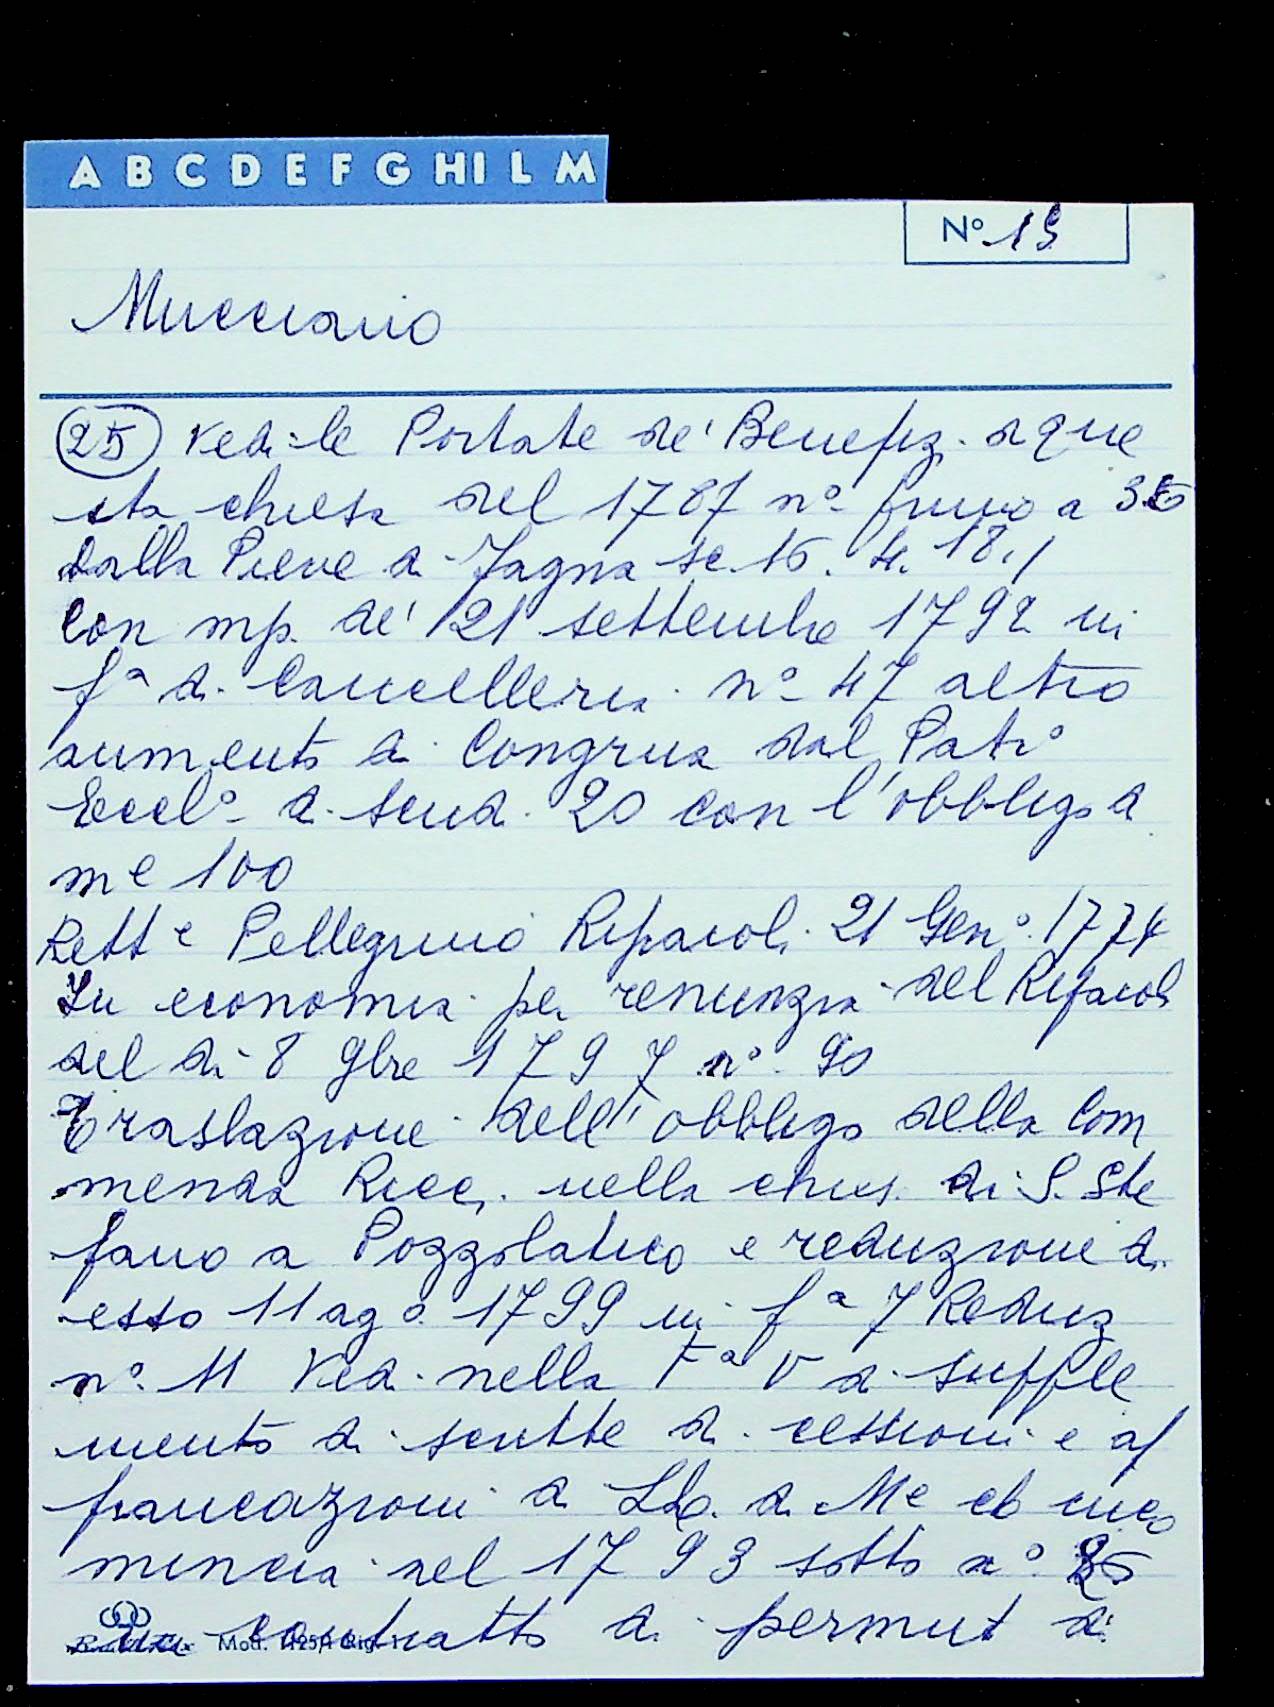 A B C D E F G HI L M
Nº 19
Mucciano
25 Vedi le Portate de' Benefiz. di que
sta chiesa del 1787 nº primo a 35
dalla Pieve a Fagna sc. 16. 4. 18.1
Con mp. de' 21 settembre 1792 in
fª di Cancelleria nº 47 altro
aumento di Congrua dal Patrº
Ecclº di scud. 20 con l'obbligo di
me 100
Rett e Pellegrino Ripaioli 21 Genº. 1774
In economia per renunzia del Ripaioli
del di 8 9bre 1797 nº. 90
Traslazione dell'obbligo della Com
menda Ricci. nella chies. di S. Ste
fano a Pozzolatico e reduzione di
esso 11 agº 1799 in fª 7 Reduz
nº. 11 Ved. nella Fª V di supple
mento di scritte di cessioni e af
francazioni di Lli. di Me ch inco
mincia nel 1793 sotto nº
un contratto di permut di
Mod.